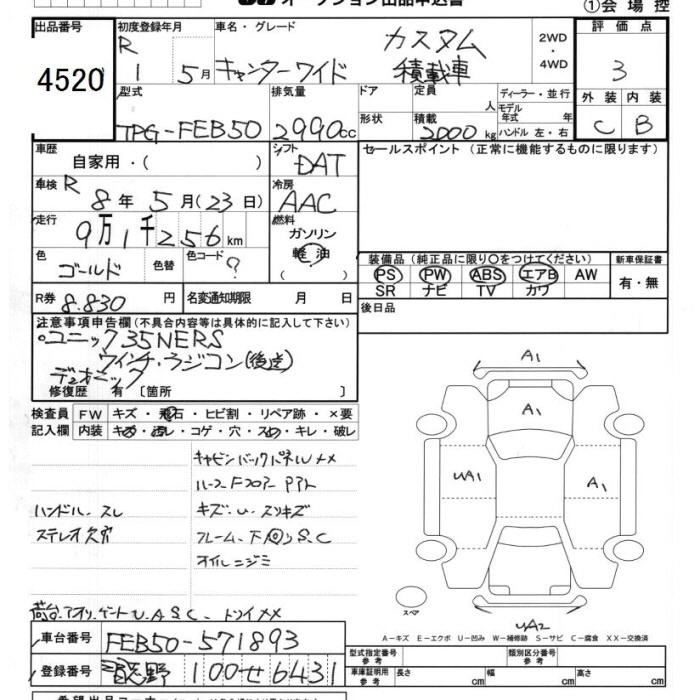 オークション出品申込書
①会場控
出品番号 4520
初度登録年月 R 1 5月
車名・グレード キャンターワイド カスタム 積載車
2WD ・ 4WD
評価点 3
外装 内装
C B
型式 TPG-FEB50
排気量 2990cc
ドア 形状
定員 人
積載 2000kg
ディーラー・並行
モデル年式 年
ハンドル 左・右
車歴 自家用・( )
シフト DAT
セールスポイント (正常に機能するものに限ります)
車検 R 8年 5月(23日)
冷房 AAC
走行 9万1千256km
燃料 ガソリン 軽油 ( )
色 ゴールド 色替 色コード ?
装備品 (純正品に限り○をつけてください)
新車保証書
PS PW ABS エアB AW
SR ナビ TV カワ
有・無
R券 8.830円
名変通知期限 月 日
後日品
注意事項申告欄(不具合内容等は具体的に記入して下さい)
○ユニック35NERS
ウインチ・ラジコン(後送)
デュオニック
修復歴 有 〔箇所 〕
検査員記入欄
FW キズ・飛石・ヒビ割・リペア跡・×要
内装 キズ・汚レ・コゲ・穴・スレ・キレ・破レ
キャビンバックパネルXX
ハンドル.スレ
キズ・U.スリキズ
ステレオ欠
フレーム.下回りS.C
オイルニジミ
荷台.アオリ.ゲートU.A.S.C.
A1
A1
UA1
A1
スペア
UA2
A－キズ E－エクボ U－凹み W－補修跡 S－サビ C－腐食 XX－交換済
車台番号 FEB50-571893
登録番号 100せ6431
型式指定番号 参考
類別区分番号 参考
車庫証明用 参考 長さ cm 幅 cm 高さ cm